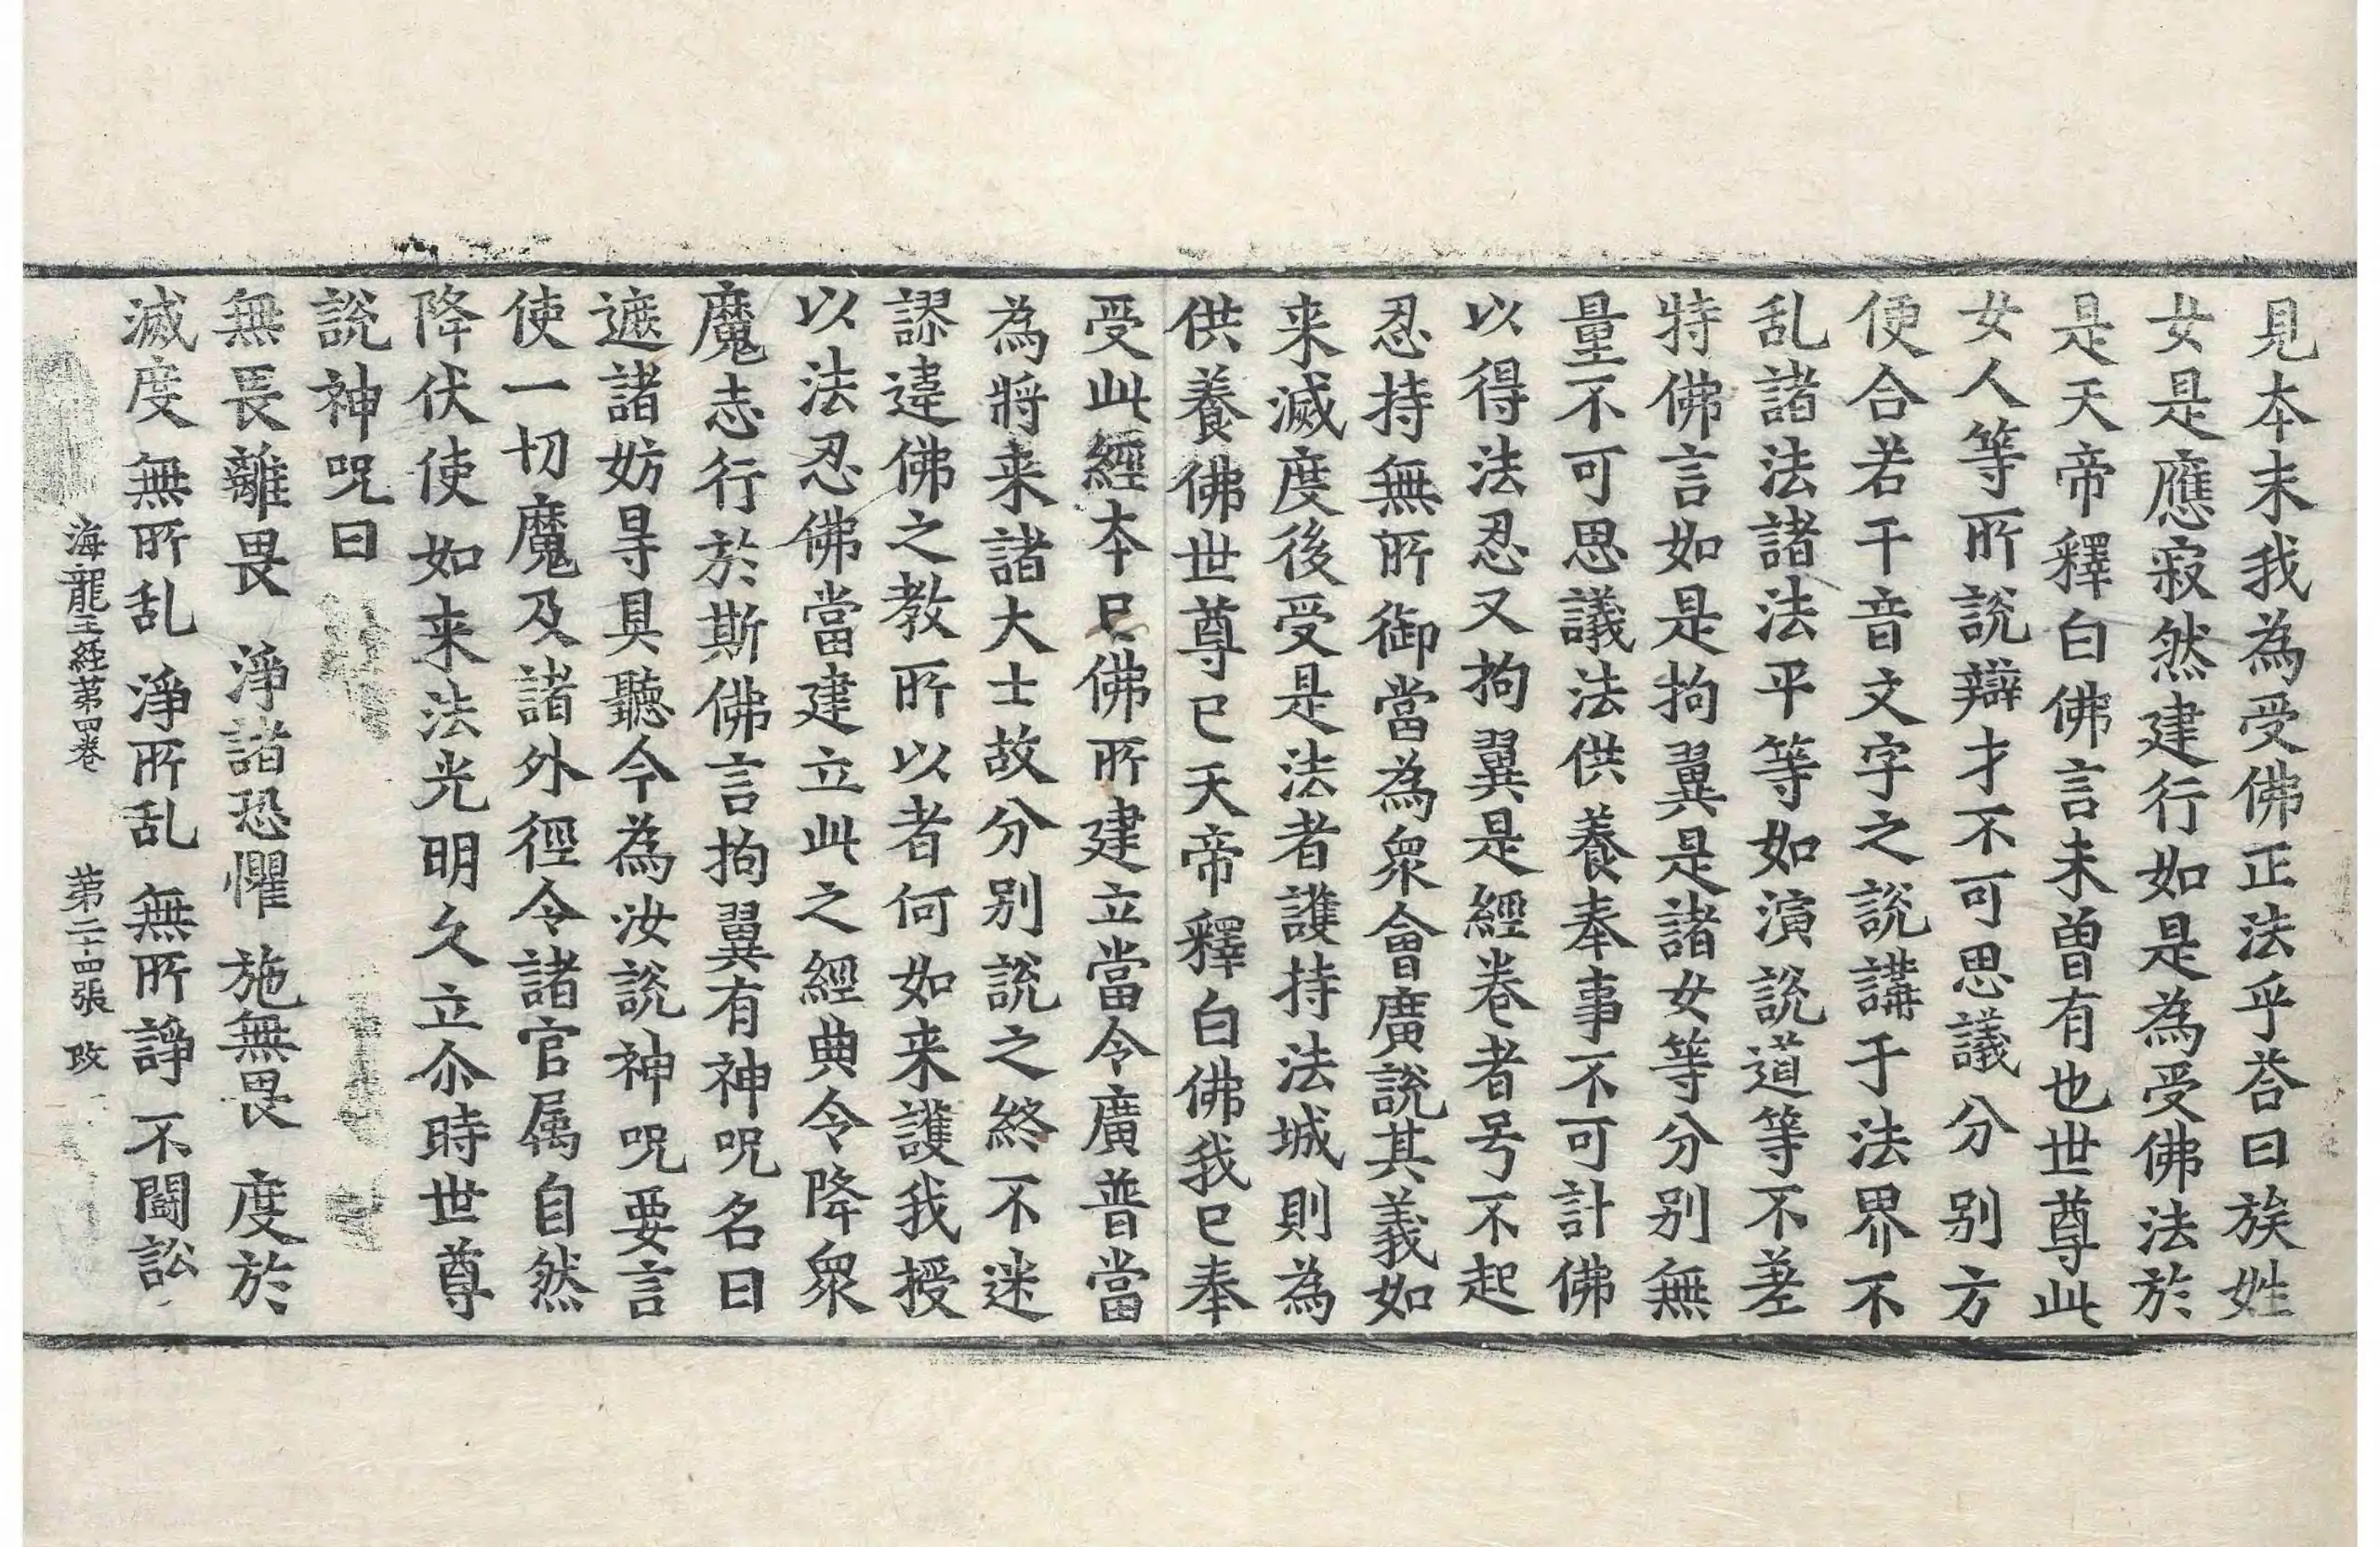 見本末我為受佛正法乎荅曰族姓
女是應寂然建行如是為受佛法於
是天帝釋白佛言未曾有也世尊此
女人等所說辯才不可思議分別方
便合若干音文字之說講于法界不
乱諸法諸法平等如演說道等不差
特佛言如是拘翼是諸女等分別無
量不可思議法供養奉事不可計佛
以得法忍又拘翼是經卷者号不起
忍持無所御當為衆會廣說其義如
来滅度後受是法者護持法城則為
供養佛世尊已天帝釋白佛我已奉
受此經本已佛所建立當令廣普當
為將来諸大士故分別說之終不迷
謬違佛之教所以者何如来護我授
以法忍佛當建立此之經典令降衆
魔志行於斯佛言拘翼有神呪名曰
遮諸妨㝵具聽今為汝說神呪要言
使一切魔及諸外徑令諸官属自然
降伏使如来法光明久立尒時世尊
說神呪曰
無畏離畏 淨諸恐懼 施無畏 度於
滅度 無所乱 淨所乱 無所諍 不鬪訟
海龍王経苐四卷 苐二十四張 改